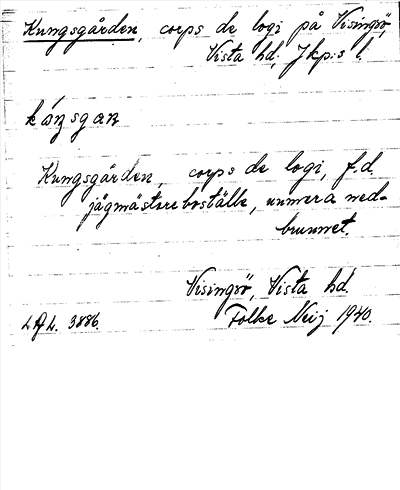 Kungsgården, corps de logi på Visingsö,
Vista hd, Jkp:s l.
kángsgan
Kungsgården, corps de logi, f.d.
jägmästareboställe, numera ned-
brunnet.
Visingsö, Vista hd.
LAL. 3886. Folke Neij 1940.